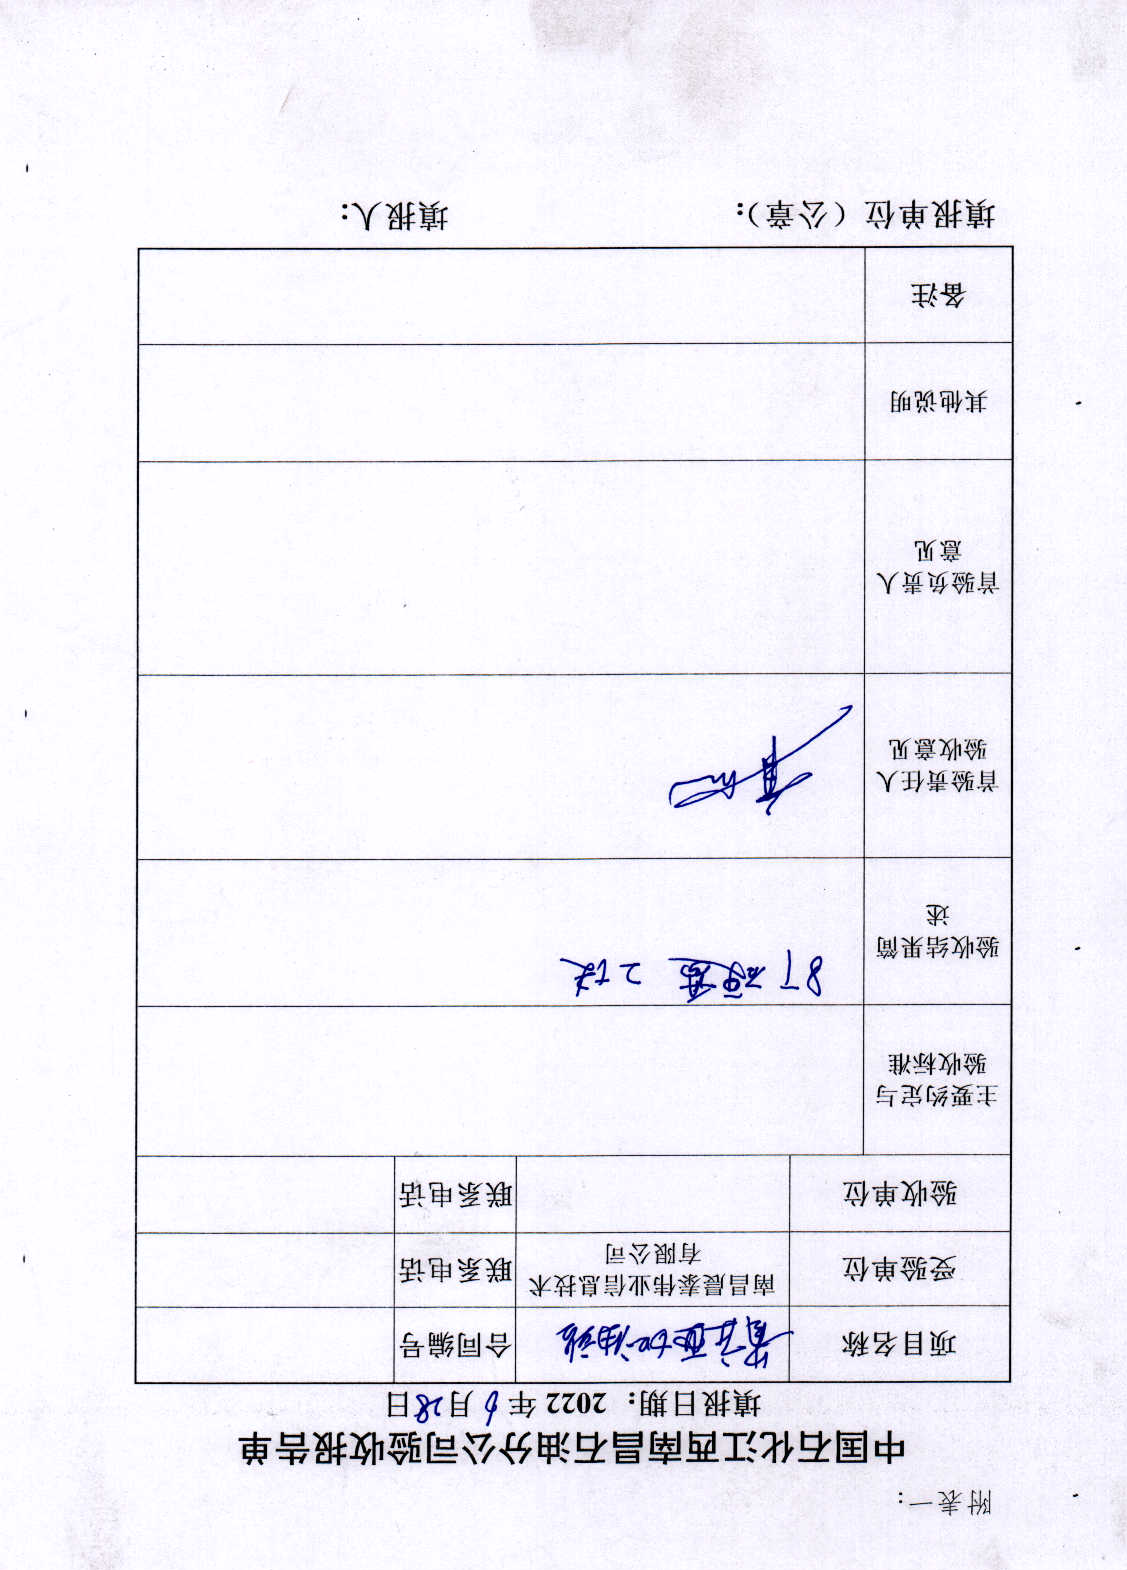 附表一：
中国石化江西南昌石油分公司验收报告单
填报日期： 2022 年 6 月 28 日
项目名称 加油站 合同编号
受验单位 南昌晨泰伟业信息技术 联系电话
有限公司
验收单位 联系电话
主要约定与
验收标准
验收结果简
述
首验责任人
验收意见
首验负责人
意见
其他说明
备注
填报单位（公章）： 填报人：